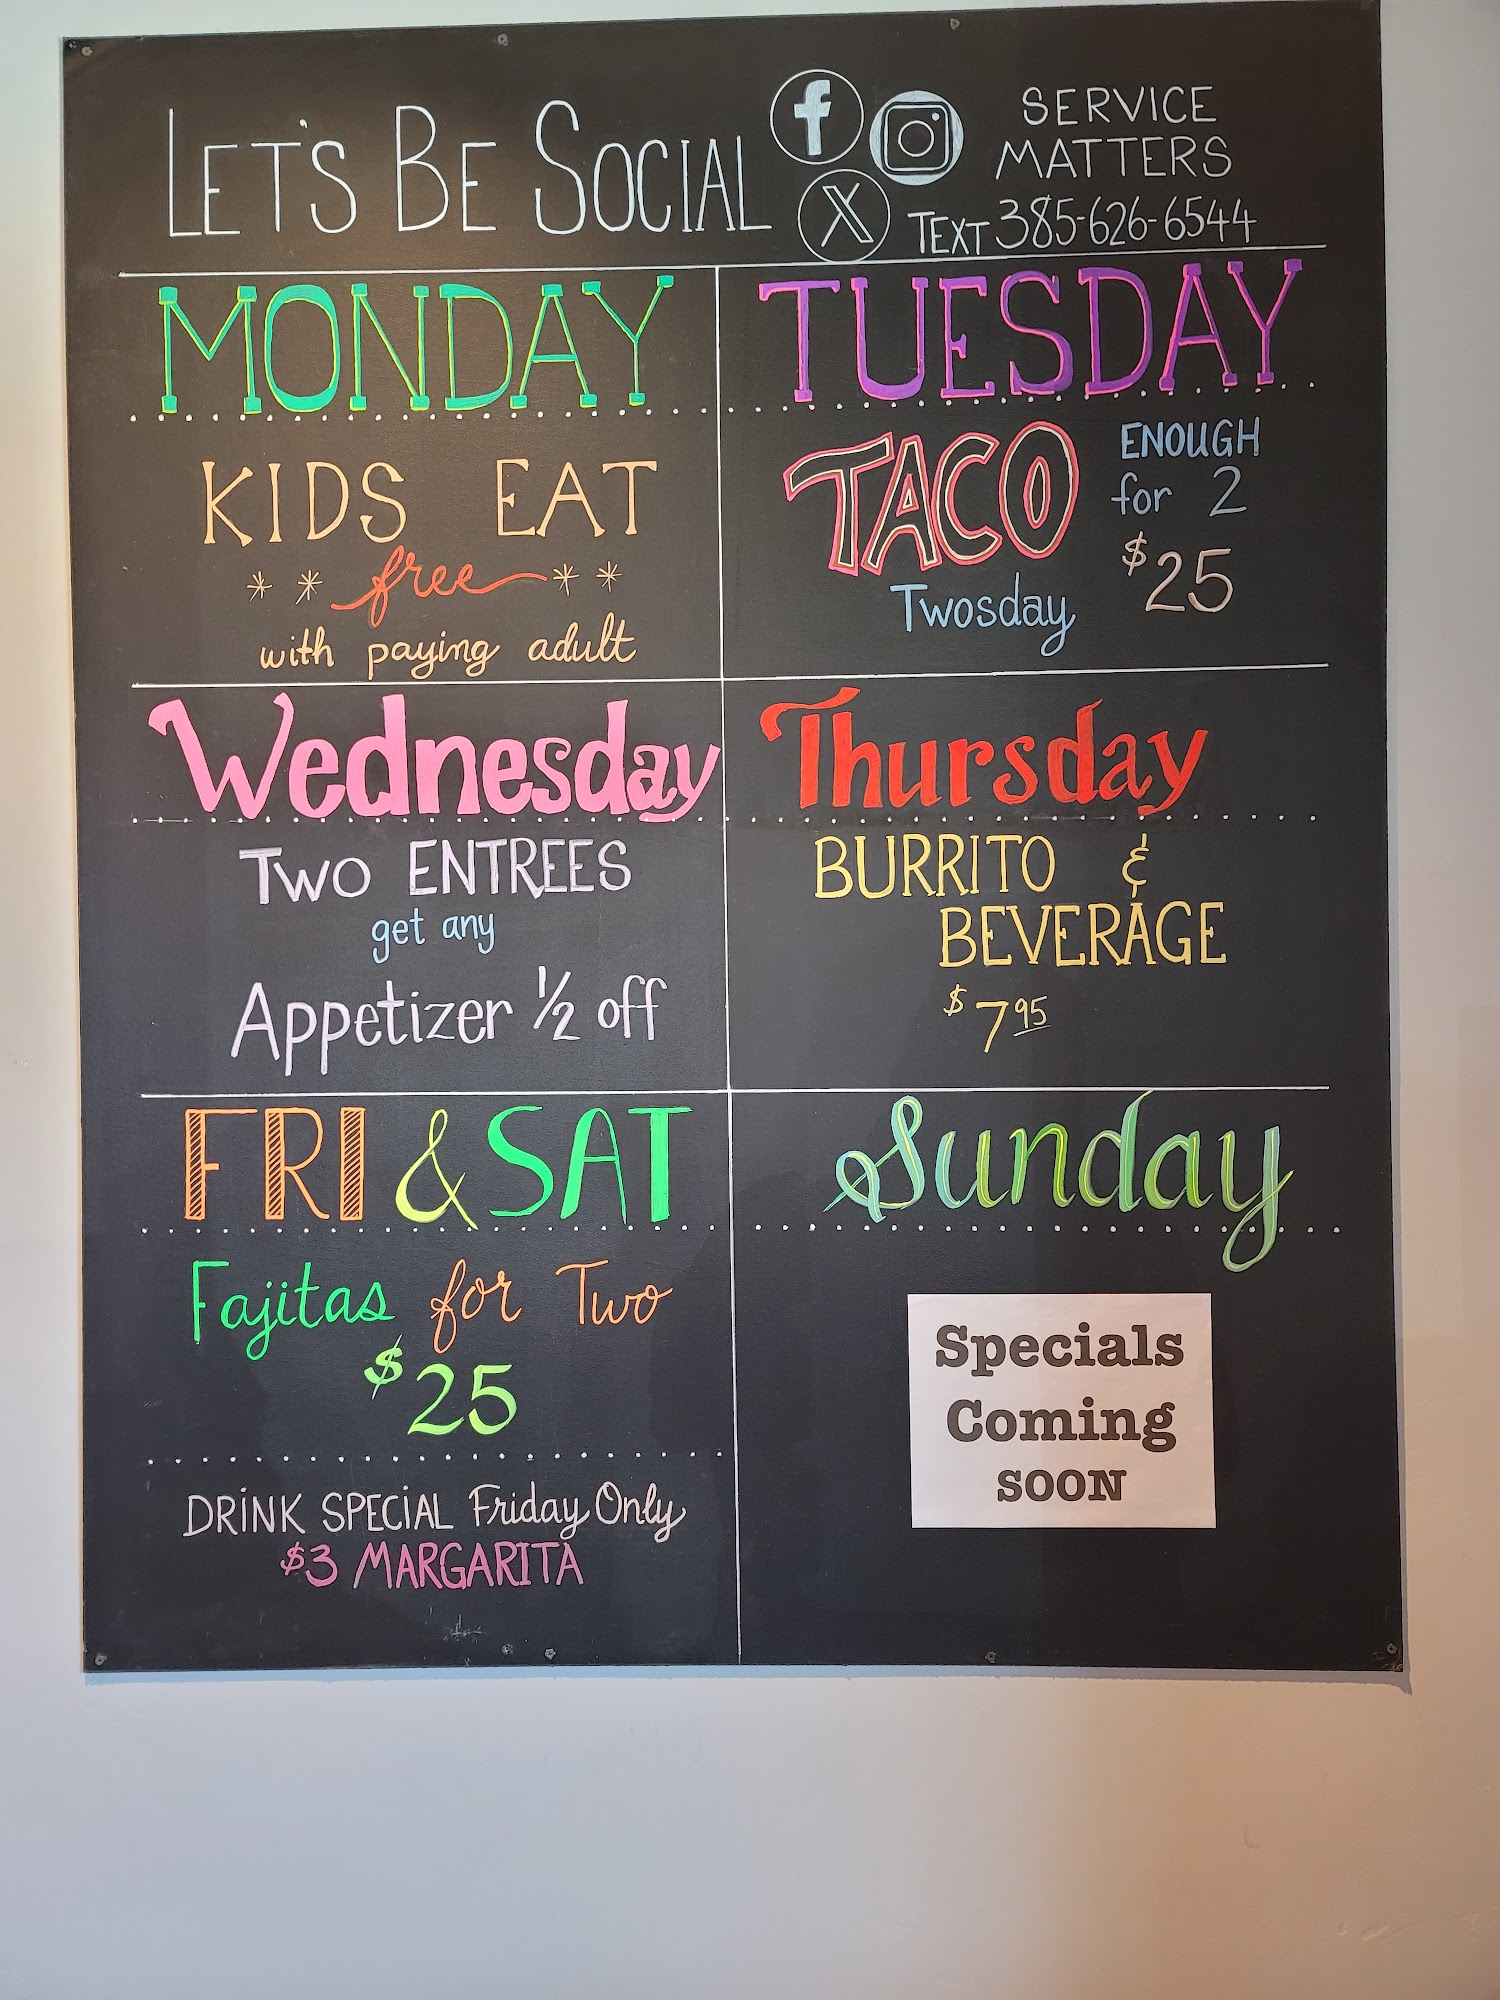 LET'S BE SOCIAL
SERVICE
MATTERS
TEXT 385-626-6544
MONDAY
KIDS EAT
** free **
with paying adult
TUESDAY
TACO
Twosday
ENOUGH
for 2
$25
Wednesday
TWO ENTREES
get any
Appetizer ½ off
Thursday
BURRITO &
BEVERAGE
$7.95
FRI & SAT
Fajitas for Two
$25
DRINK SPECIAL Friday Only
$3 MARGARITA
Sunday
Specials
Coming
SOON